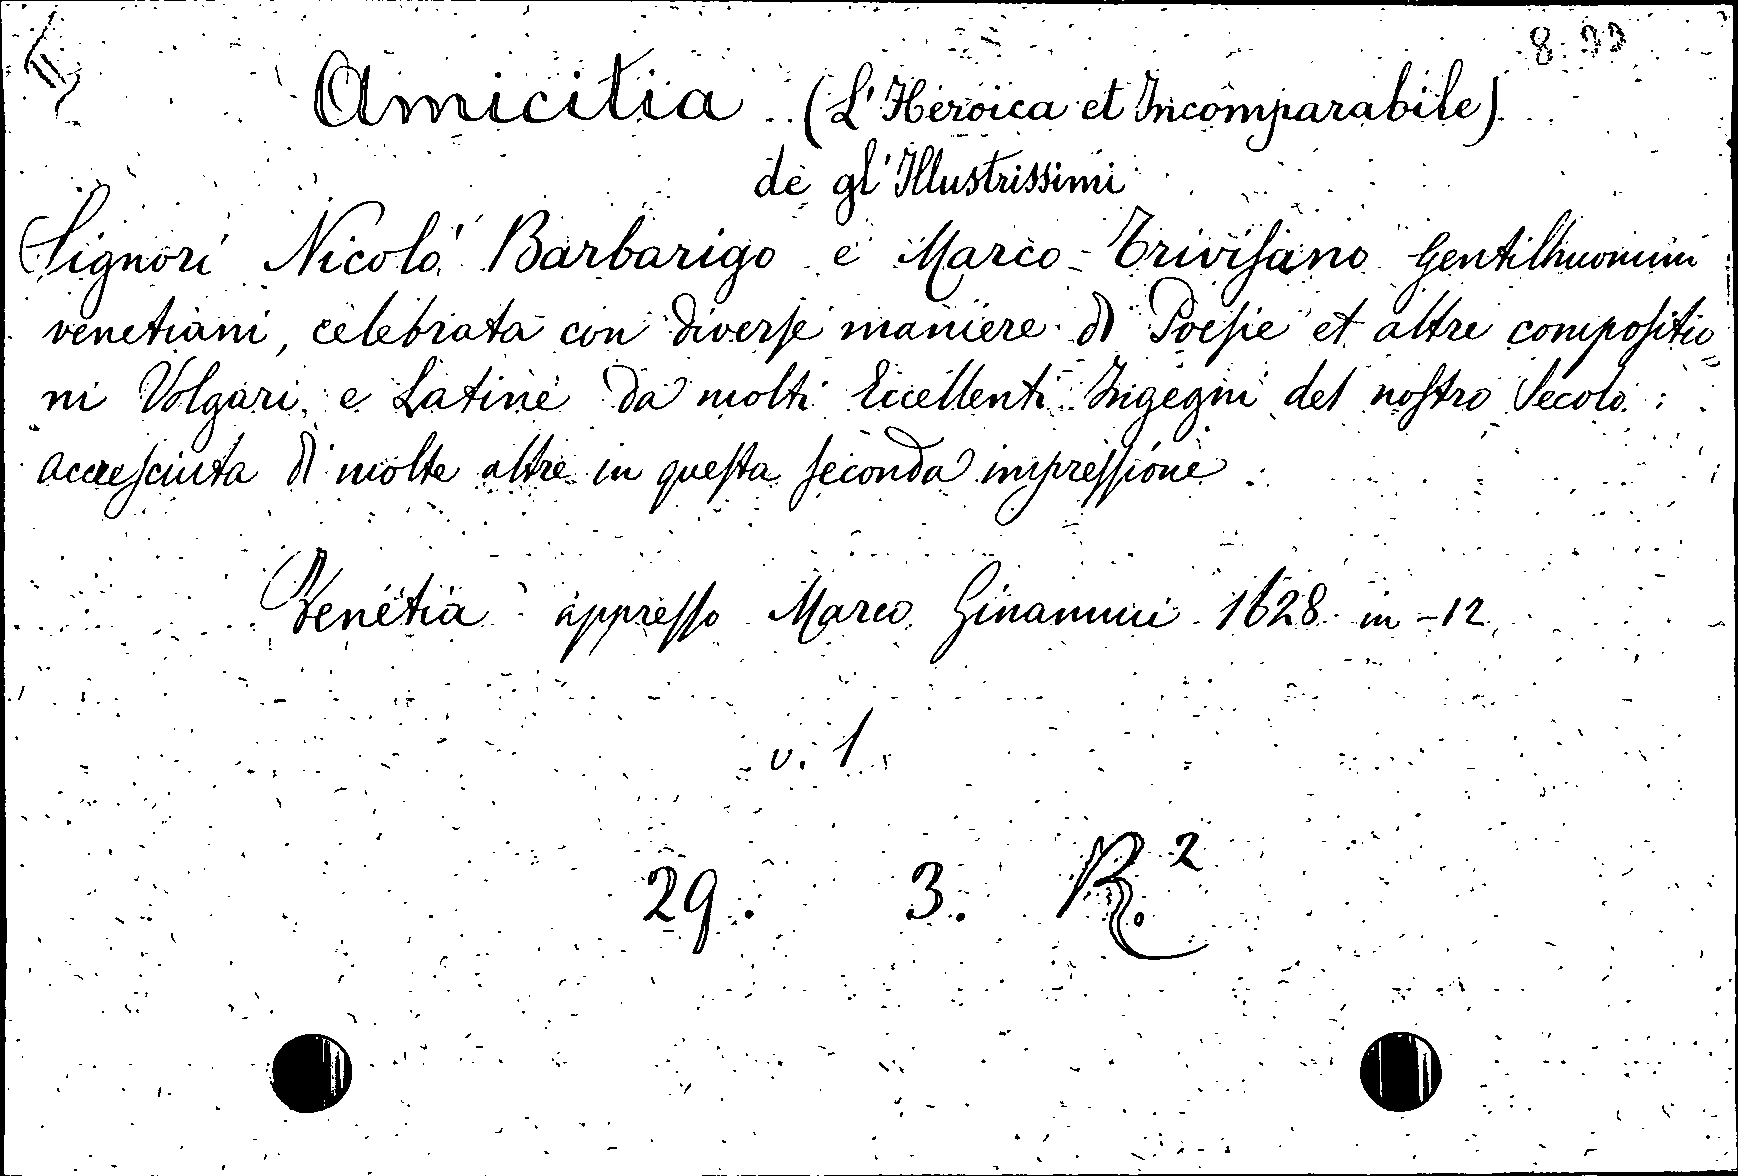 8 99
Amicitia (L'Heroica et Incomparabile)
de gl'Illustrissimi
Signori Nicoló Barbarigo e Marco Trivisano Gentilhuomini
venetiani, celebrata con diverse maniere di Poesie et altre compositio
ni Volgari, e Latine da molti Eccellenti Ingegni del nostro Secolo:
accresciuta di molte altre in questa seconda impressione.
Venetia appresso Marco Ginammi 1628 in-12
v. 1.
29. 3. R.2